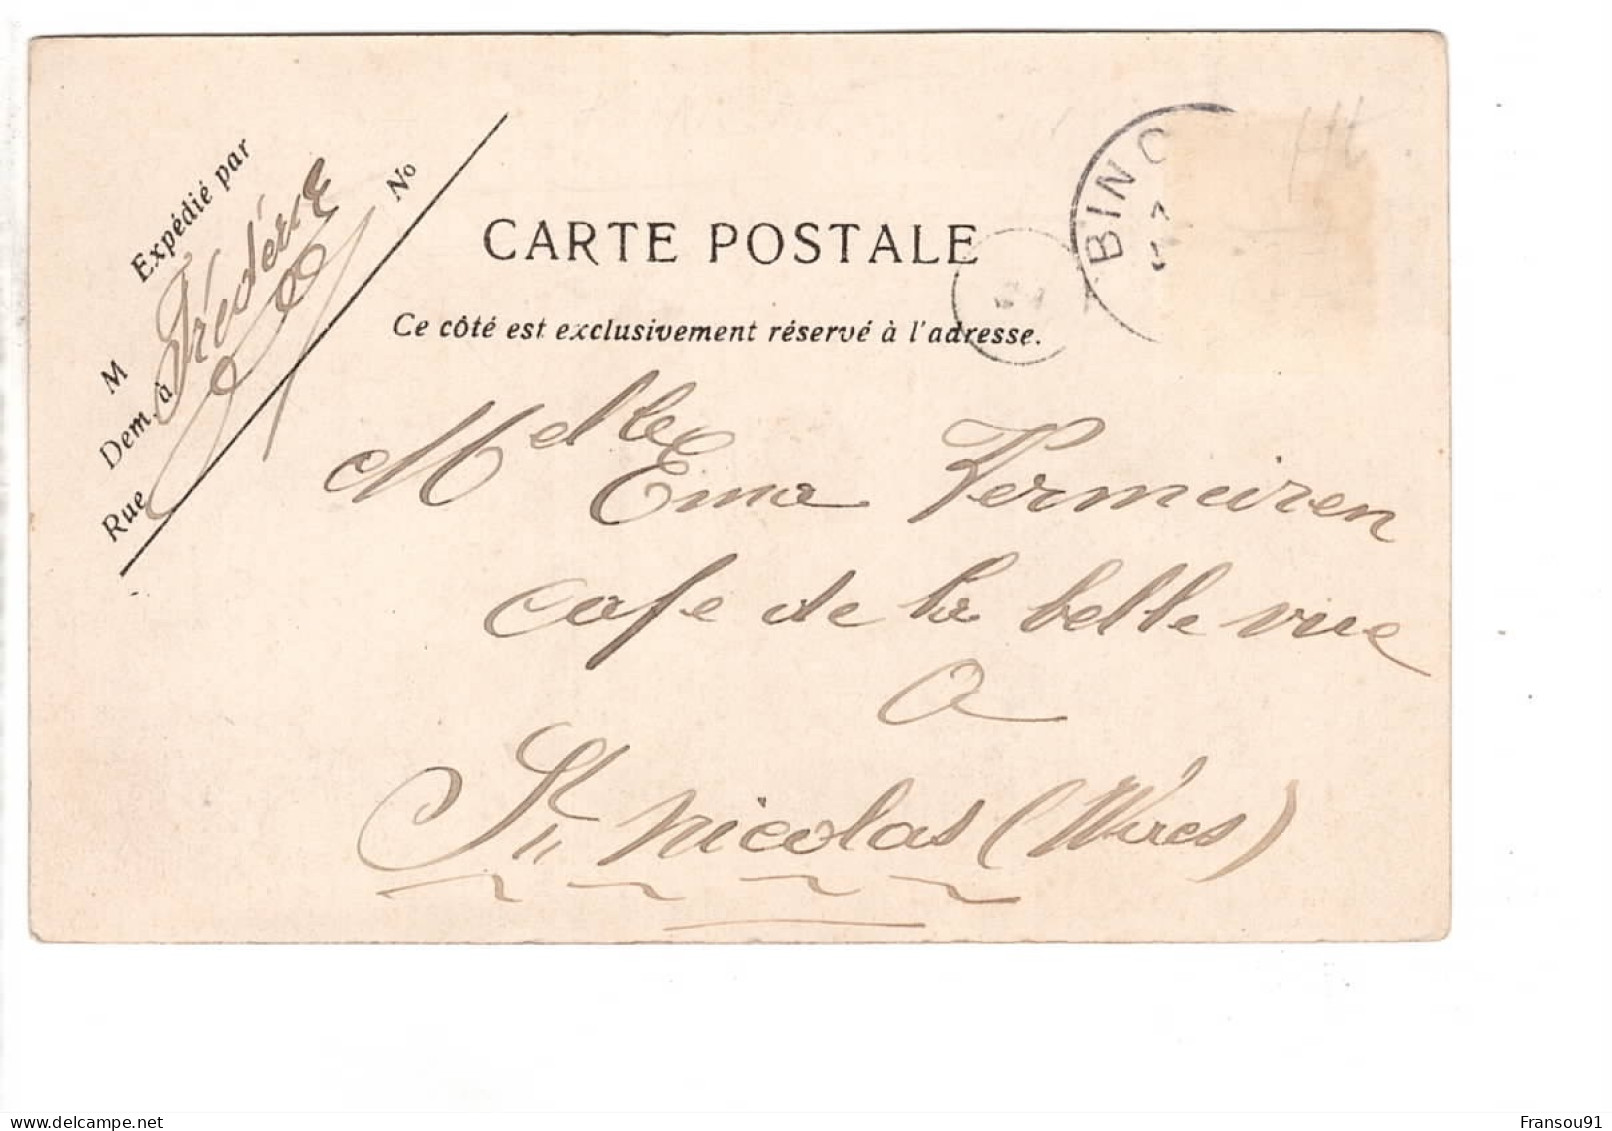 Expédié par
Fréderic
M
Dem. à
Rue
No
CARTE POSTALE
Ce côté est exclusivement réservé à l'adresse.
BINC
7
Melle Ema Vermeiren
cafe de la belle vue
a
St nicolas (Waes)
delcampe.net
Fransou91